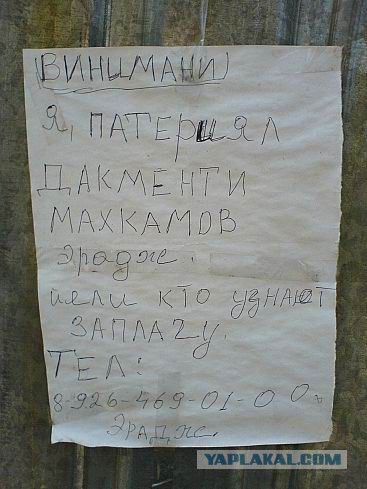 (ВИНИМАНИ)
Я, ПАТЕРИЯЛ
ДАКМЕНТИ
МАХКАМОВ
Эрадж.
йели КТО УЗНАЮТ
ЗАПЛАТУ.
ТЕЛ:
8-926-469-01-00.
ЭРАДЖ.
YAPLAKAL.COM